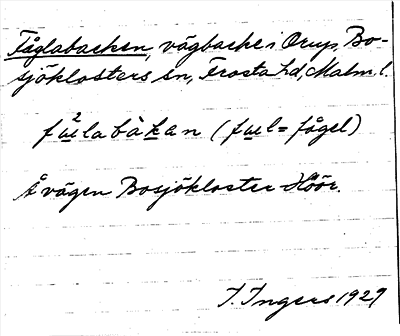 Fåglabacken, vägbacke i Orup, Bo-
sjöklosters sn, Frosta hd, Malm. l.
fu²labàkan (ful = fågel)
Å vägen Bosjökloster-Höör.
I. Ingers 1927